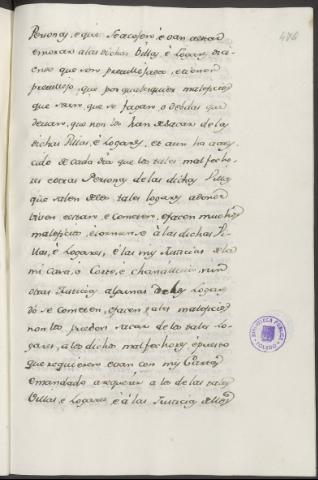 476
Personas, e que se acojen, è van a estar
è morar a las dichas Villas, è Logares, dici-
endo que son previllejados, è tienen
previllejo, que por qualesquier maleficios
que sean, que se fagan, o debdas que
devan, que non los han de sacar de las
dichas Villas, è Logares, et aun ha acaes-
cido de cada dia que los tales malfecho-
res è otras Personas de las dichas Villas
que salen de los tales logares a donde
viven è estan, è cometen, è facen muchos
maleficios, è tornanse à las dichas Vi-
llas, è Logares, è las mis Justicias de la
mi Casa, o Corte, è Chancilleria, nin
otras Justicias algunas de los Logares
dó se cometen, è facen tales maleficios
non los pueden sacar de los tales Lo-
gares, a los dichos malfechores, è puesto
que requieren è van con mis Cartas
è mandado a requerir a los de las tales
Villas, è Logares è à las Justicias dellos
BIBLIOTECA PUBLICA
TOLEDO